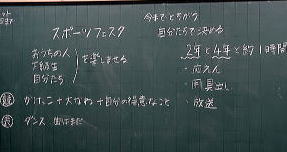 スポーツフェスク
おうちの人
下級生
自分たち
を楽しませる
今までとちがう
自分たちで決める
2年と4年と約1時間
・応えん
・用具出し
・放送
かけっこ+大なわ+自分の得意なこと
ダンス